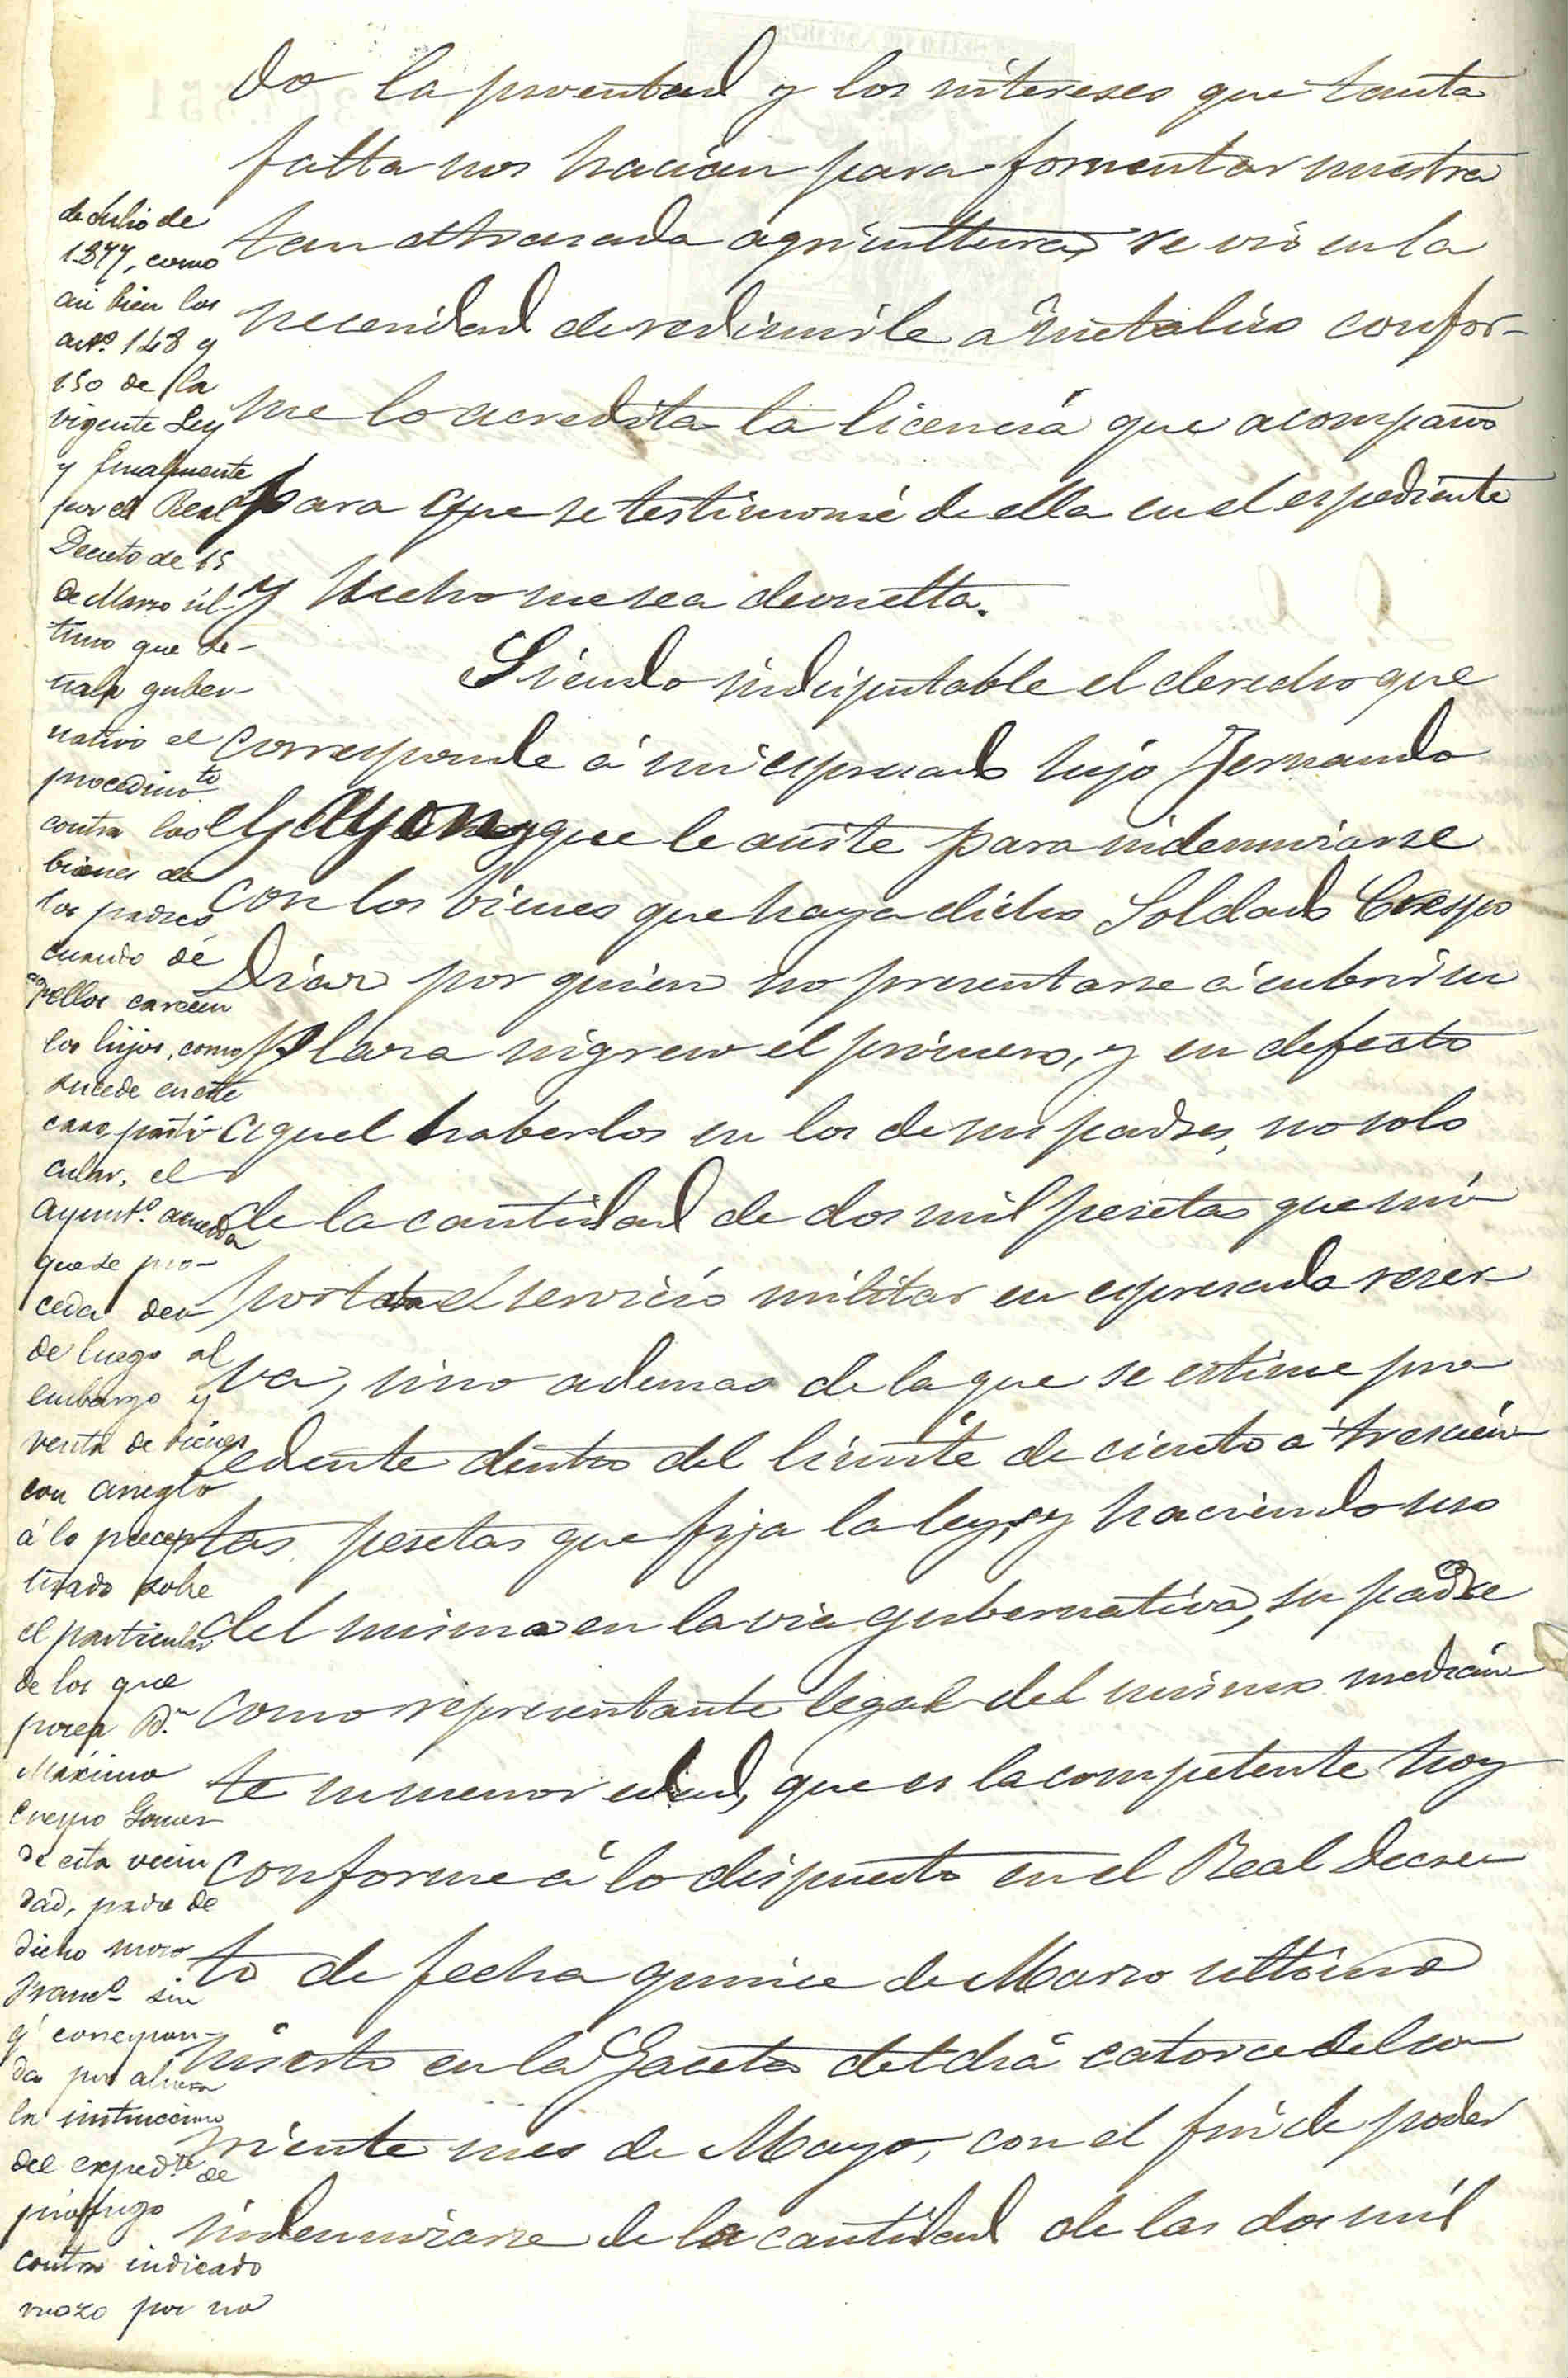 do la juventud y los intereses que tanta
falta nos hacian para fomentar nuestra
tan atrasada agricultura, se vió en la
necesidad de redimirle á metalico confor-
me lo acredita la licencia que acompaño
para que se testimonie de ella en el espediente
y hecho me sea devuelta.
Siendo indisputable el derecho que
corresponde á mi espresado hijo Fernando
que le asiste para indemnizarse
con los bienes que haya dicho Soldado Crespo
Diaz por quien no presentarse á cubrir su
plaza ingreso el primero, y en defecto
aquel haberlos en los de sus padres, no solo
de la cantidad de dos mil pesetas que im-
porta el servicio militar en espresada reser-
va, sino ademas de la que se estime pro-
cedente dentro del limite de ciento á trescien-
tas pesetas que fija la ley; y haciendo uso
del mismo en la via gubernativa, su padre
como representante legal del mismo median-
te su menor edad, que es la competente hoy
conforme á lo dispuesto en el Real Decre-
to de fecha quince de Marzo ultimo
inserto en la Gaceta del dia catorce del co-
rriente mes de Mayo, con el fin de poder
indemnizarse de la cantidad de las dos mil
de Julio de
1877, como
asi bien los
artº. 148 y
150 de la
vigente Ley
y finalmente
por el Real
Decreto de 15
de Marzo úl-
timo que de-
clara guber-
nativo el
procedimto.
contra los
bienes de
los padres
cuando de
aquellos carecen
los hijos, como
sucede en este
caso parti-
cular, el
Ayuntº. acuerda
que se pro-
ceda des-
de luego al
embargo y
venta de bienes
con arreglo
á lo precep-
tuado sobre
el particular
de los que
posea Dn.
Máximo
Crespo Gomez
de esta vecin
dad, padre de
dicho mozo
Francº sin
q' correspon-
da por ahora
la instruccion
del expedte. de
prófugo
contra indicado
mozo por no